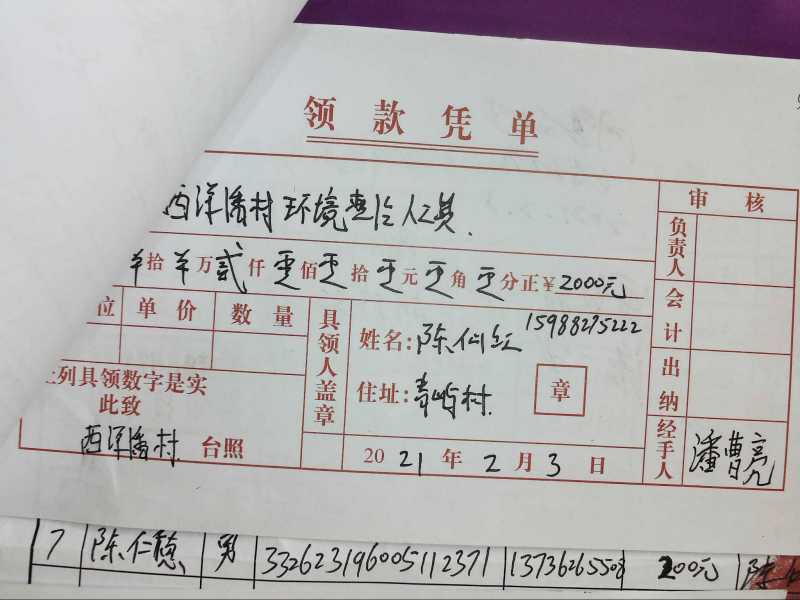 领款凭单
西洋潘村环境整治人工费.
拾 万 贰 仟 零 佰 零 拾 零 元 零 角 零 分正 ¥ 2000元
位 单价 数量
具领人盖章
姓名: 陈仙红 15988275222
住址: 青屿村
章
上列具领数字是实
此致
西洋潘村 台照
2021年2月3日
审核
负责人
会计
出纳
经手人 潘曹亮
7 陈仁慧 男 332623196005112371 13736265508 200元 陈